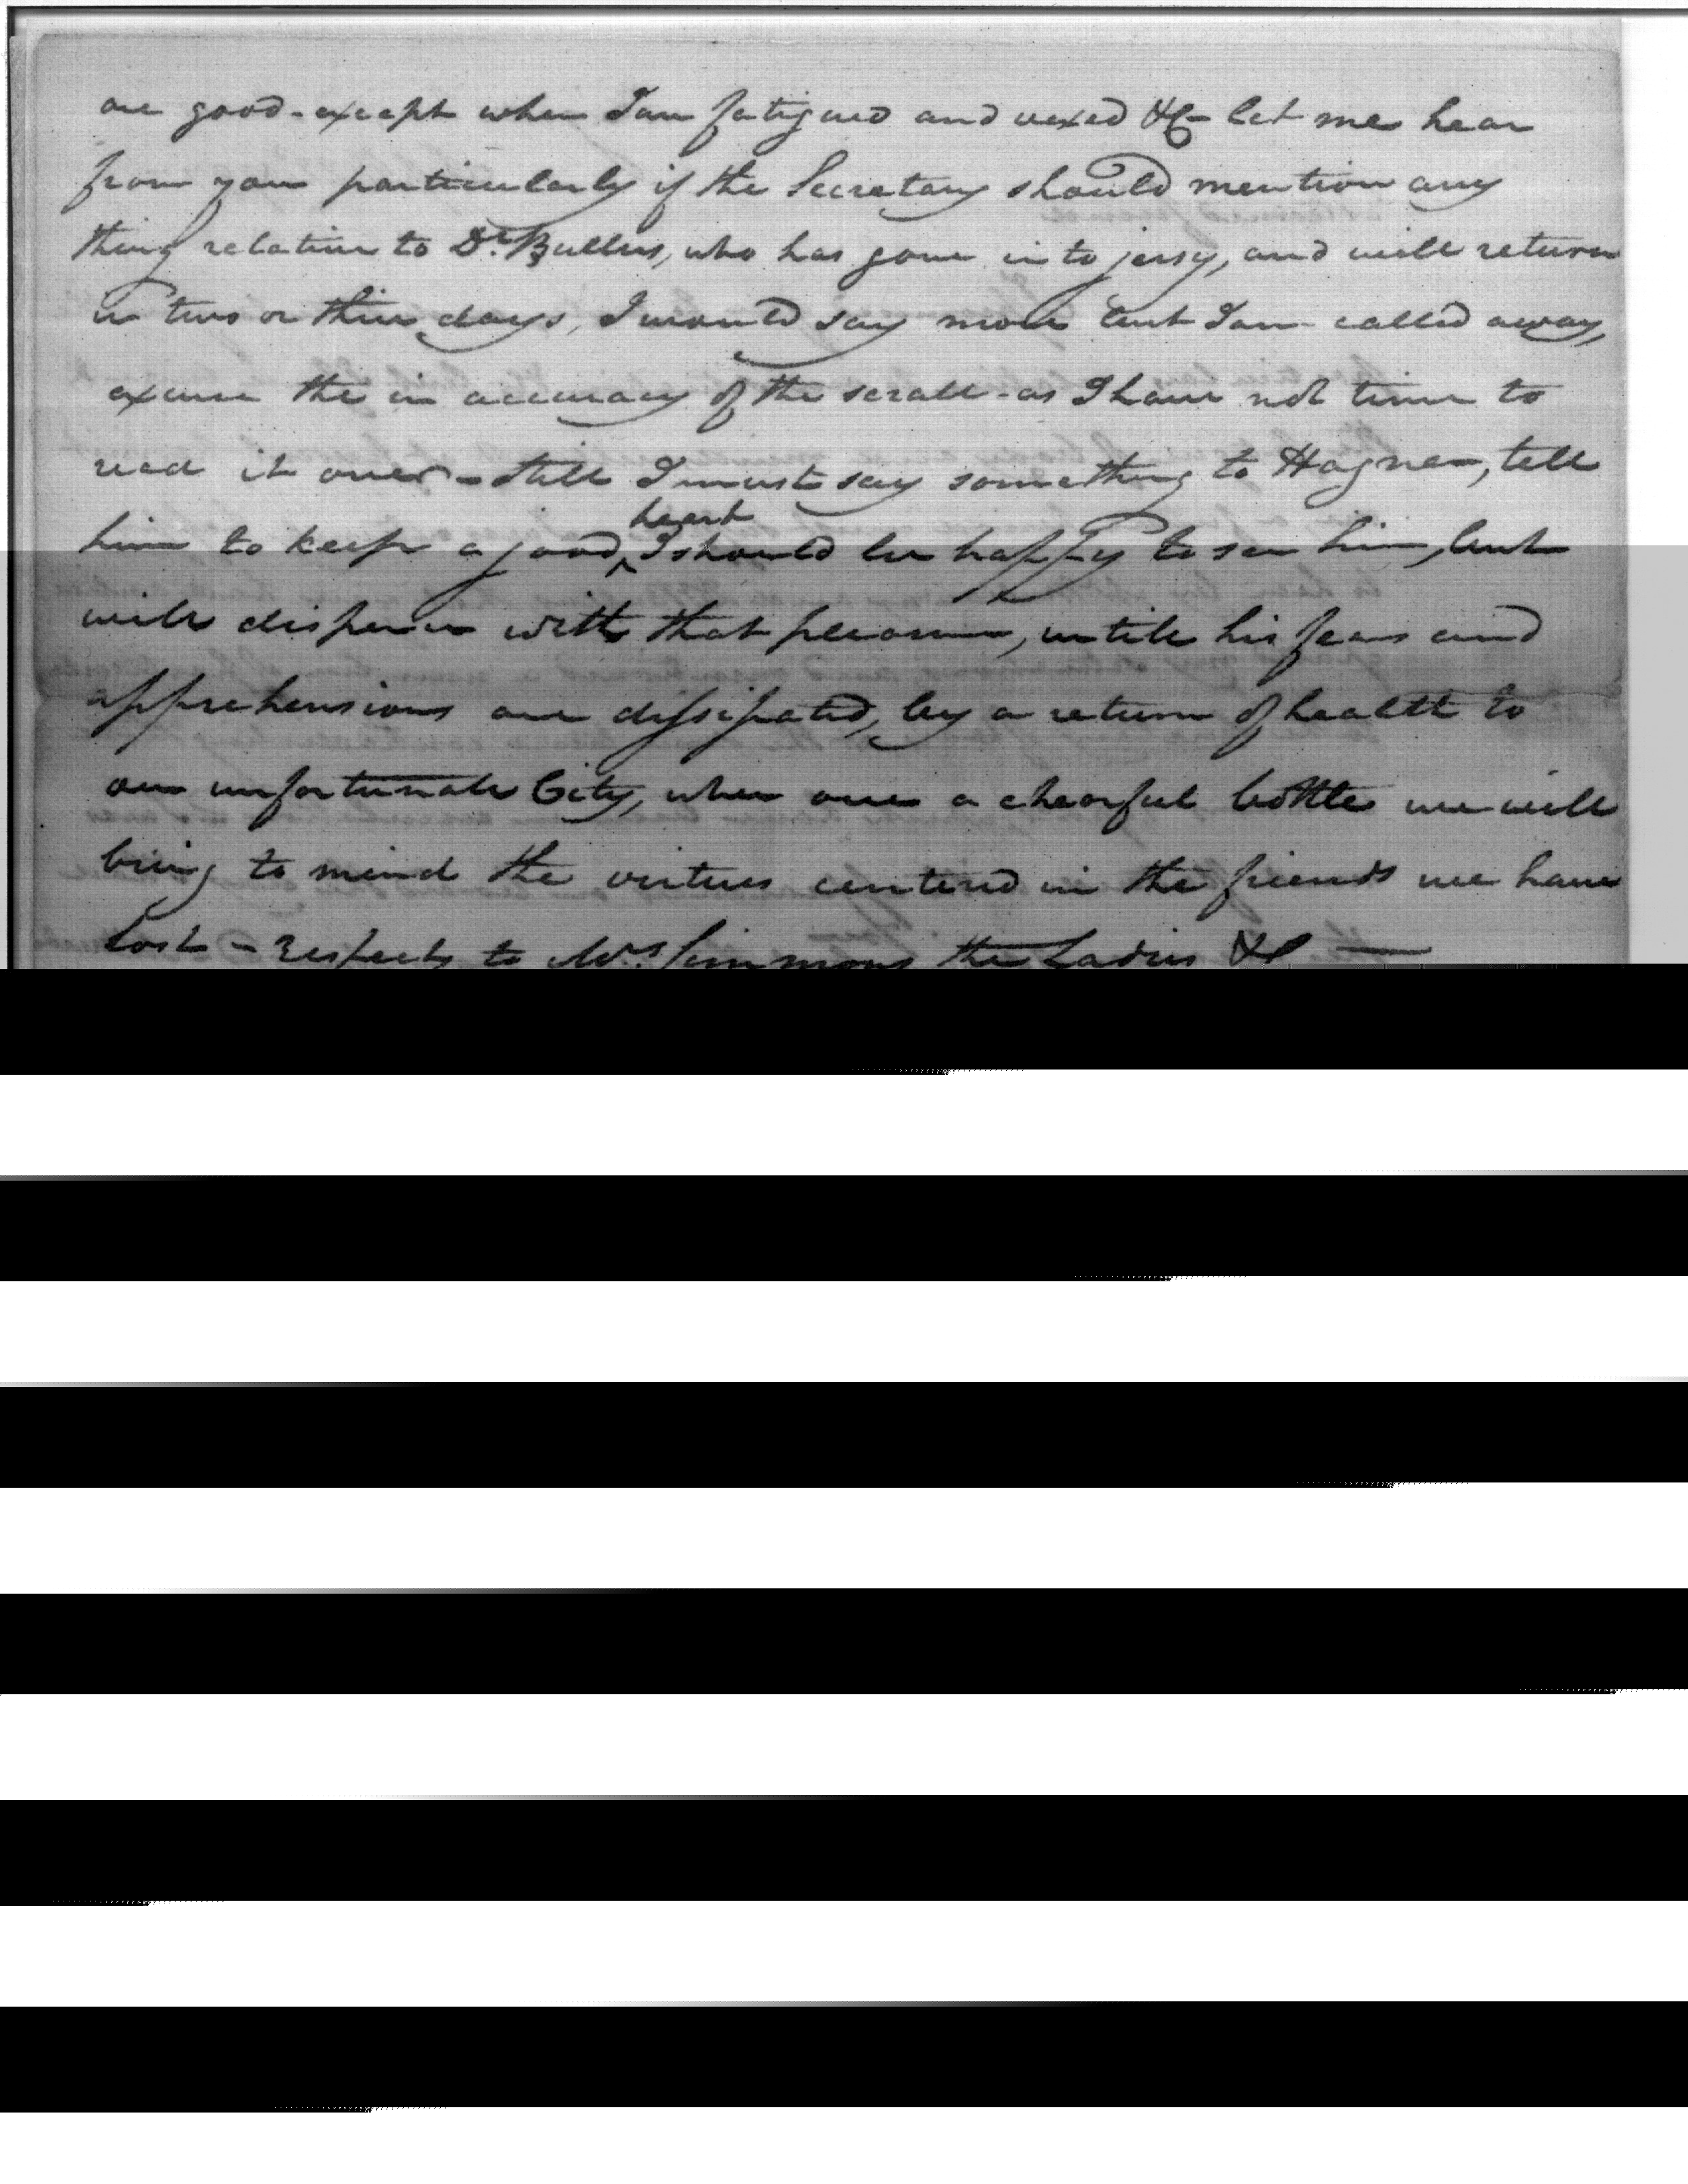 are good - except when I am fatigued and vexed &c - let me hear
from you particularly if the Secretary should mention any
thing relative to Dr. Bullus, who has gone into jersy, and will return
in two or three days, I would say more but I am called away,
excuse the in accuracy of the scrall - as I have not time to
read it over - still I must say something to Hagner, tell
heart
him to keep a good ^ I should be happy to see him, but
will dispence with that pleasure, untill his fears and
apprehensions are dissipated, by a return of health to
our unfortunate City, when over a chearful bottle we will
bring to mind the virtues centered in the friends we have
lost - respects to Mrs. Simmons the Ladies &c —